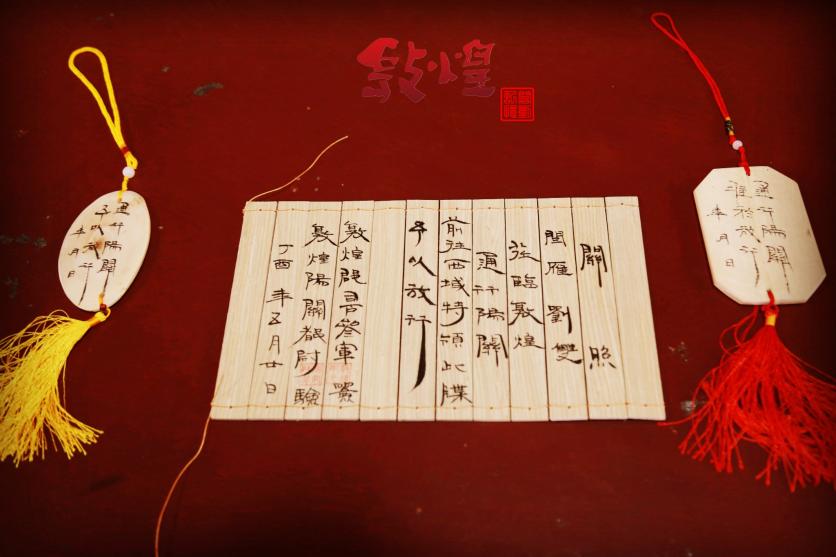 敦煌
關照
閆雁 劉雙
從臨敦煌
通行陽關
前往西域特頒此牒
予以放行
敦煌郡司參軍署
敦煌陽關都尉驗
丁酉年五月廿日
通行陽關
予以放行
年月日
通行陽關
准於放行
年月日